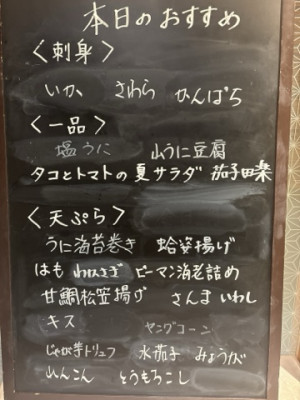 本日のおすすめ
〈刺身〉
いか さわら かんぱち
〈一品〉
塩うに 山うに豆腐
タコとトマトの夏サラダ 茄子田楽
〈天ぷら〉
うに海苔巻き 蛤姿揚げ
はも わかさぎ ピーマン海老詰め
甘鯛松笠揚げ さんま いわし
キス ヤングコーン
じゃが芋トリュフ 水茄子 みょうが
れんこん とうもろこし